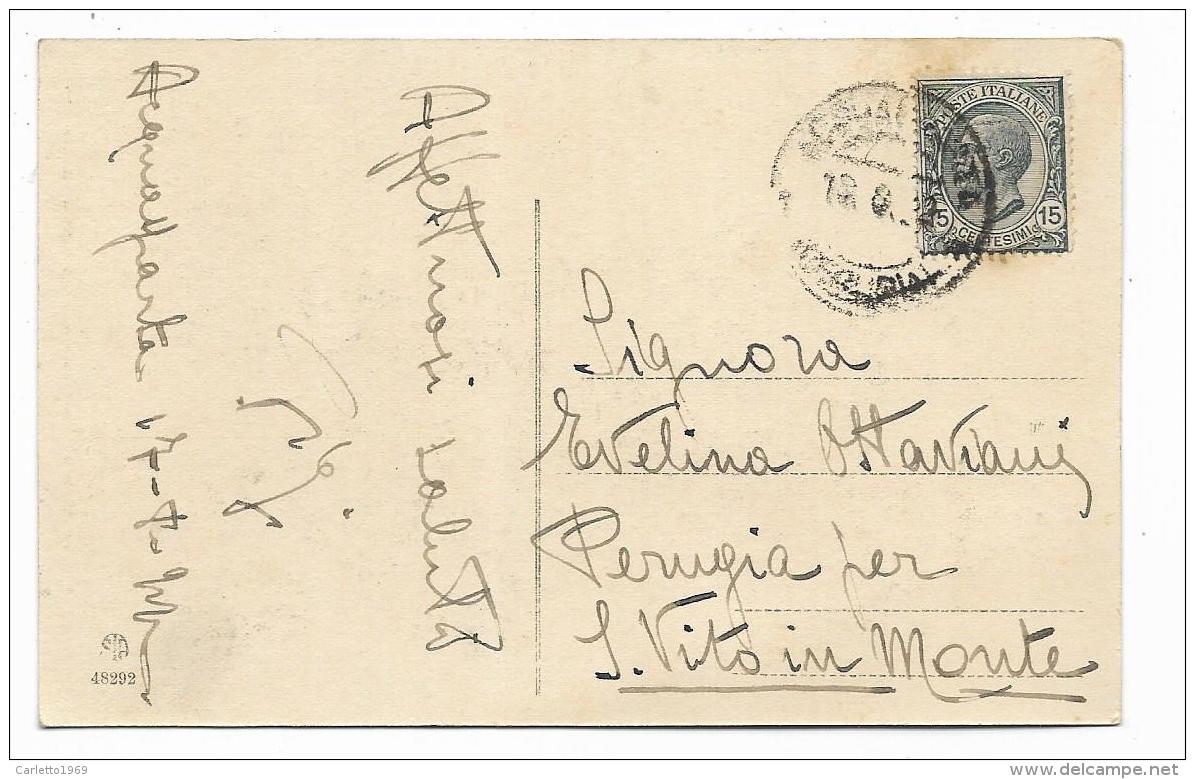 Acquasparta 17-8-
Affettuosi saluti
POSTE ITALIANE
15 15
CENTESIMI
Signora
Evelina Ottaviani
Perugia per
S. Vito in Monte
48292
Carletto1969
www.delcampe.net